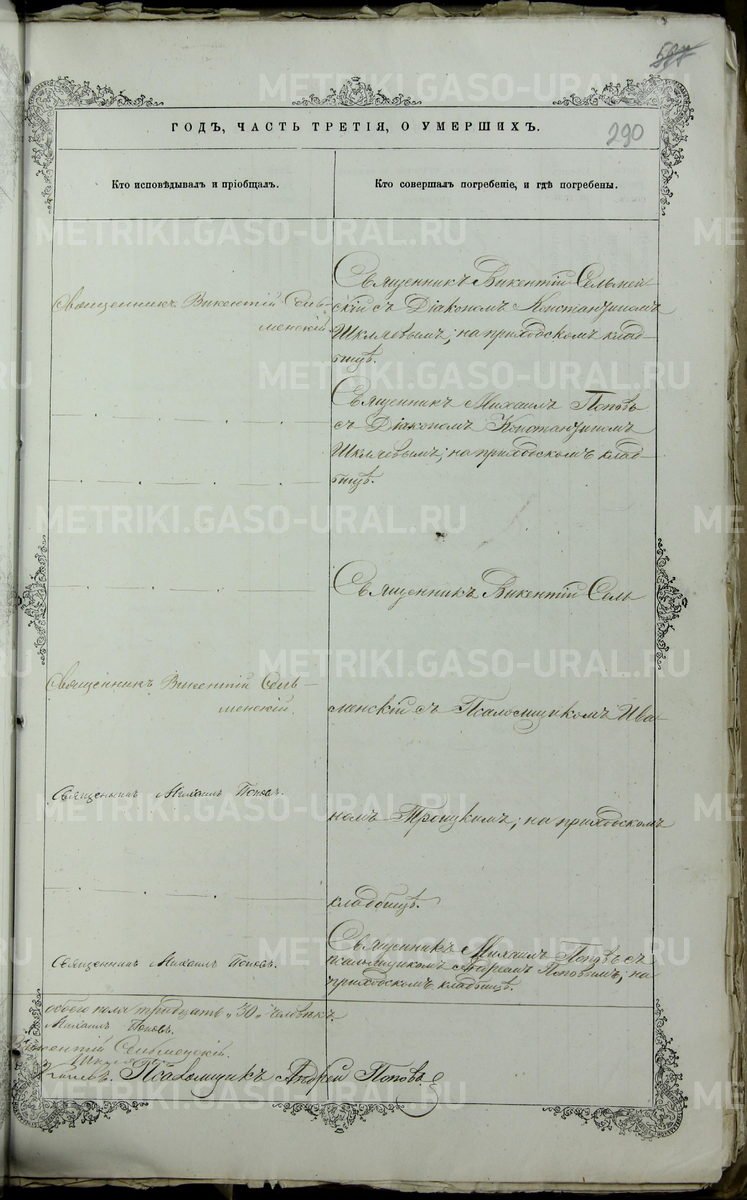 587
290
ГОДЪ, ЧАСТЬ ТРЕТІЯ, О УМЕРШИХЪ.
Кто исповѣдывалъ и пріобщалъ.
Кто совершалъ погребеніе, и гдѣ погребены.
Священникъ Викентій Сель-
менскій
Священникъ Викентій Сельмен
скій съ Діакономъ Константиномъ
Шкляевымъ; на приходскомъ клад-
бищѣ.
Священникъ Михаилъ Поповъ
съ Діакономъ Константиномъ
Шкляевымъ; на приходскомъ клад-
бищѣ.
Священникъ Викентій Сель
Священникъ Викентій Сель-
менскій.
менскій съ Псаломщикомъ Ива
Священникъ Михаилъ Поповъ.
номъ Троицкимъ; на приходскомъ
кладбищѣ.
Священникъ Михаилъ Поповъ.
Священникъ Михаилъ Поповъ съ
псаломщикомъ Андреемъ Поповымъ; на
приходскомъ кладбищѣ.
обоего пола тридцать „30„ человѣкъ.
Михаилъ Поповъ.
Псаломщикъ Андрей Поповъ
METRIKI.GASO-URAL.RU